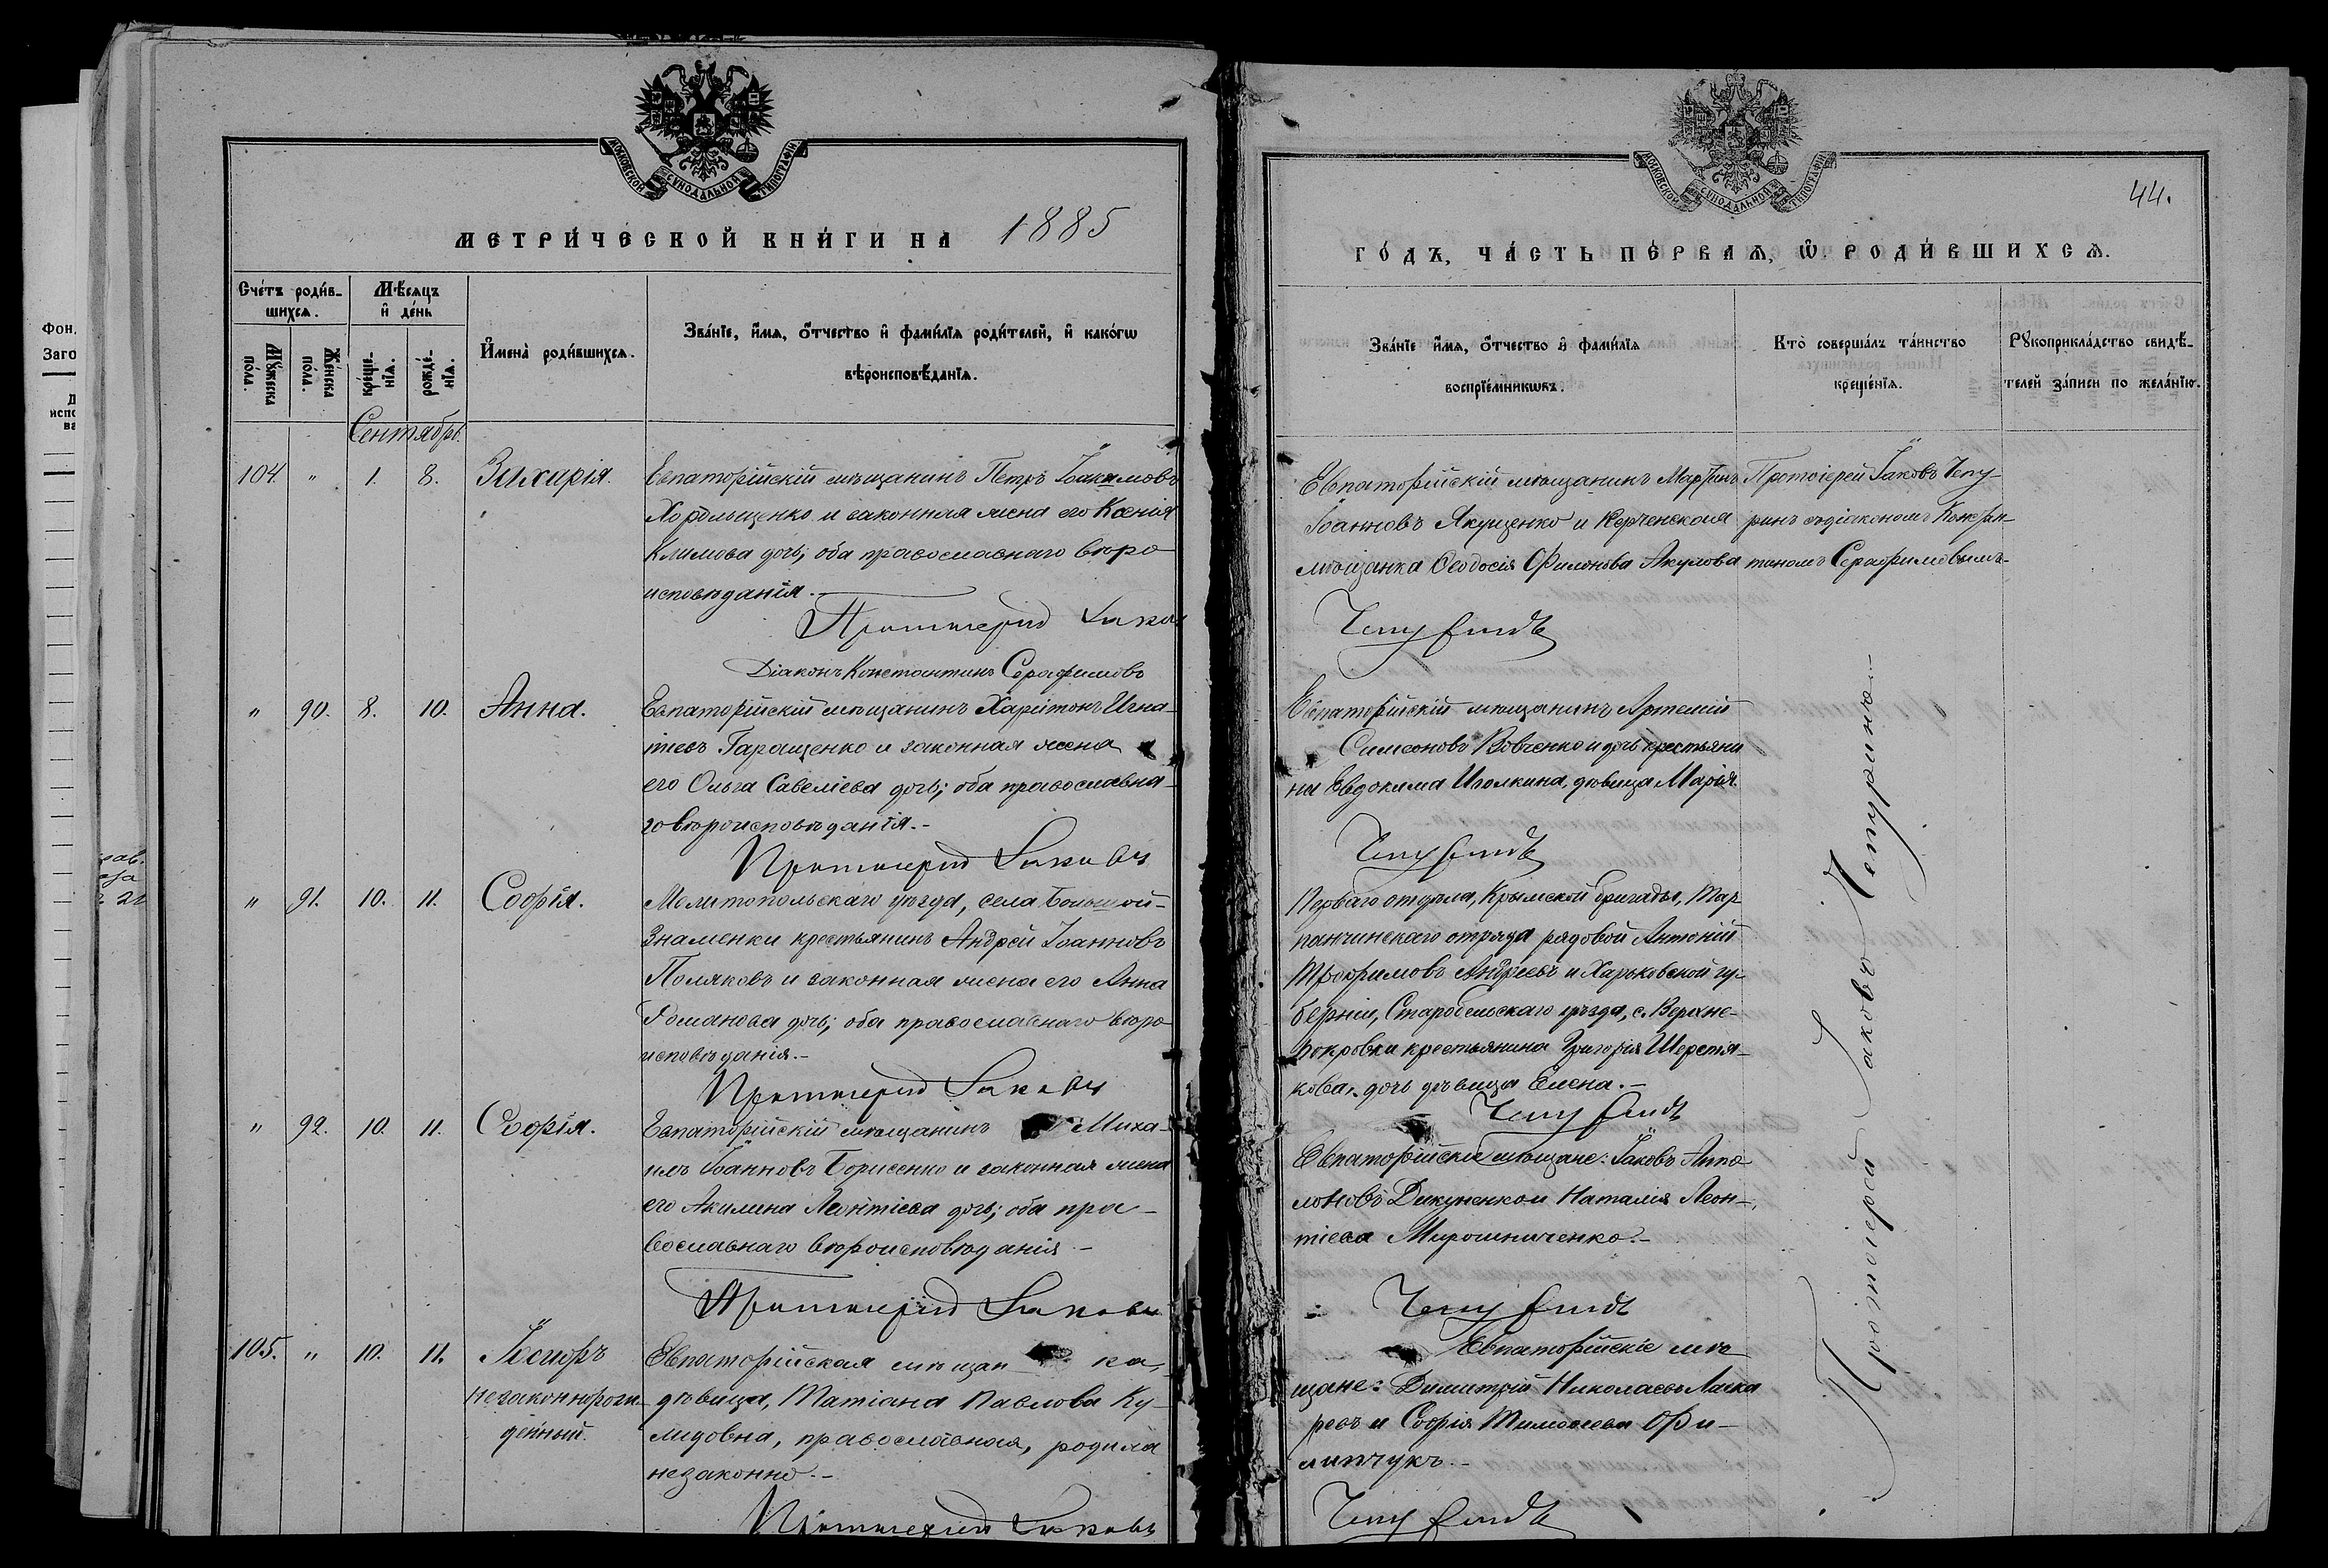 МОСКОВСКОЙ СѴНОДАЛЬНОЙ ТИПОГРАФІИ
МЕТРИ́ЧЕСКОЙ КНИ́ГИ НА 1885
Счéтъ роди́в-
шихсѧ.
Мѣ́сѧцъ
и҆ дéнь
Мꙋ́жеска
пóла.
Жéнска
пóла.
креще́-
нїѧ.
рождé-
нїѧ.
И҆менà роди́вшихсѧ.
Звáнїе, и҆́мѧ, ѻ҆́тчество и҆ фами́лїѧ роди́телей, и҆ какóгѡ
вѣроисповѣ́данїѧ.
Сентябрь.
104. " 1. 8. Захарія.
Евпаторійскій мѣщанинъ Петръ Іоакимовъ
Хорольщенко и законная жена его Ксенія
Климова дочь; оба православнаго вѣро
исповѣданія.-
Протоіерей Іаковъ
Діаконъ Константинъ Серафимовъ
" 90. 8. 10. Анна.
Евпаторійскій мѣщанинъ Харитонъ Игна-
тіевъ Гаращенко и законная жена
его Ольга Савеліева дочь; оба православна-
го вѣроисповѣданія.-
Протоіерей Іаковъ
" 91. 10. 11. Софія.
Мелитопольскаго уѣзда, села Большой-
Знаменки крестьянинъ Андрей Іоанновъ
Поляковъ и законная жена его Анна
Романова дочь; оба православнаго вѣро
исповѣданія.-
Протоіерей Іаковъ
" 92. 10. 11. Софія.
Евпаторійскій мѣщанинъ Миха-
илъ Іоанновъ Борисенко и законная жена
его Акилина Леонтіева дочь; оба пра-
вославнаго вѣроисповѣданія.-
Протоіерей Іаковъ
105. " 10. 11. Іосифъ
незаконнорож-
денный.
Евпаторійская мѣщан ка,
дѣвица, Татіана Павлова Ку-
лидовна, православная, родила
незаконно.-
Протоіерей Іаковъ
МОСКОВСКОЙ СѴНОДАЛЬНОЙ ТИПОГРАФІИ
44.
ГО́ДЪ, ЧА́СТЬ ПЕ́РВАѦ, Ѡ҆ РОДИ́ВШИХСѦ.
Звáнїе и҆́мѧ, ѻ҆́тчество и҆ фами́лїѧ
воспрїéмникѡвъ.
Ктò совершáлъ тáинство
крещéнїѧ.
Рꙋкоприклáдство свидѣ́-
телей зáписи по желáнїю.
Евпаторійскій мѣщанинъ Мартинъ
Іоанновъ Якущенко и Керченская
мѣщанка Ѳеодосія Филонова Акулова
Протоіерей Іаковъ Чепу-
ринъ съ діакономъ Констан-
тиномъ Серафимовымъ.
Чепуринъ
Евпаторійскій мѣщанинъ Артемій
Симеоновъ Вовченко и дочь крестьяни
на Евдокима Иголкина, дѣвица Марія.
Чепуринъ
Перваго отдѣла, Крымской бригады, Тар
ханчинскаго отряда рядовой Антоній
Трофимовъ Андреевъ и Харьковской гу-
берніи, Старобельскаго уѣзда, с. Верхне-
покровки крестьянина Григорія Шерстя-
кова, дочь дѣвица Елена.-
Чепуринъ
Евпаторійскіе мѣщане: Іаковъ Анто
лоновъ Дикуненко и Наталія Леон-
тіева Мирошниченко.-
Чепуринъ
Евпаторійскіе мѣ
щане: Димитрій Николаевъ Ласка
ревъ и Софія Тимоѳеева Фи-
липчукъ.-
Чепуринъ
Протоіерей Іаковъ Чепуринъ.-